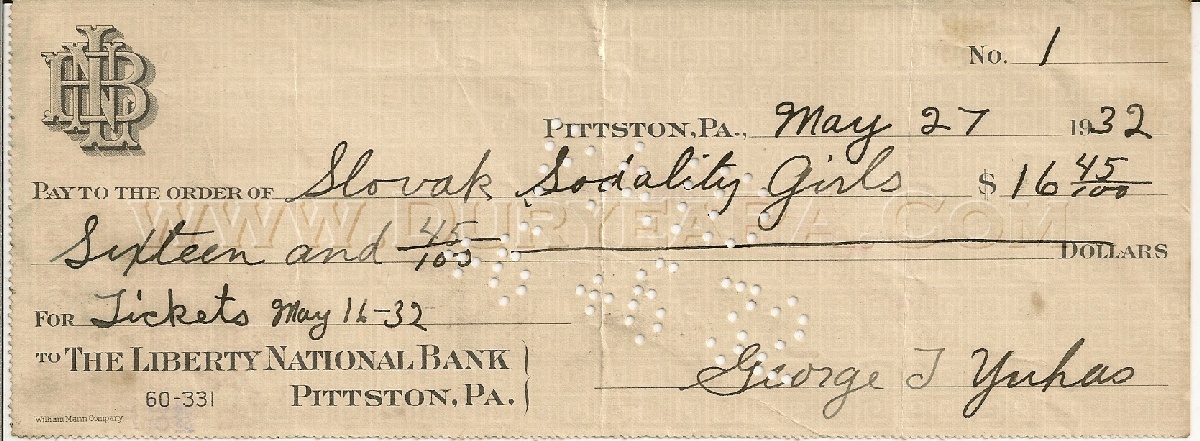 LNB
No. 1
PITTSTON, PA., May 27 1932
PAY TO THE ORDER OF Slovak Sodality Girls $ 16 45/100
WWW.DURYEAPA.COM
Sixteen and 45/100 DOLLARS
FOR Tickets May 16-32
TO THE LIBERTY NATIONAL BANK
60-331 PITTSTON, PA.
George J Yuhas
William Mann Company